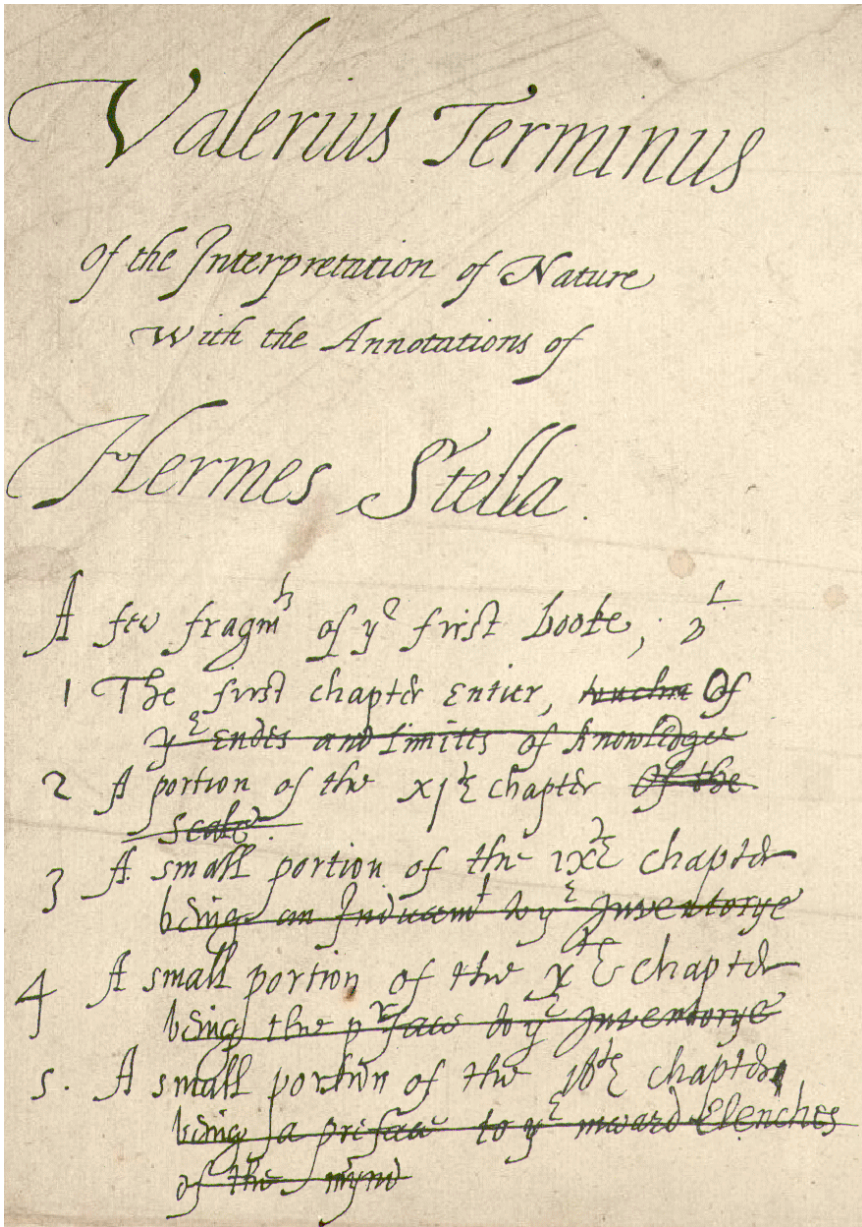 Valerius Terminus
of the Interpretation of Nature
With the Annotations of
Hermes Stella.
A few fragmts of ye first booke, vz
1 The first chapter entier, Of
ye endes and limitts of knowledge
2 A portion of the xjth chapter Of the
scale.
3 A small portion of the ixth chapter
being an Inducemt to ye Inventorye
4 A small portion of the xth chapter
being the preface to ye Inventorye
5. A small portion of the 16th chapter
being a preface to ye inward Elenches
of the mynd